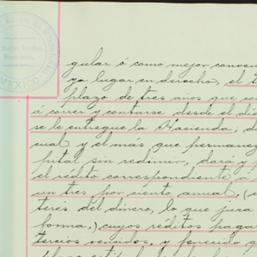 gular ó como mejor conven
ga lugar en derecho, el t
plazo de tres años que em
á correr y contarse desde el dia
se le entregue la Hacienda, d
cual y el más que permanez
pital sin redimir, dará y p
el rédito correspondiente á
un tres por ciento anual, (
terés del dinero, lo que jura
forma,) cuyos réditos pagar
tercios vencidos, y poniendo